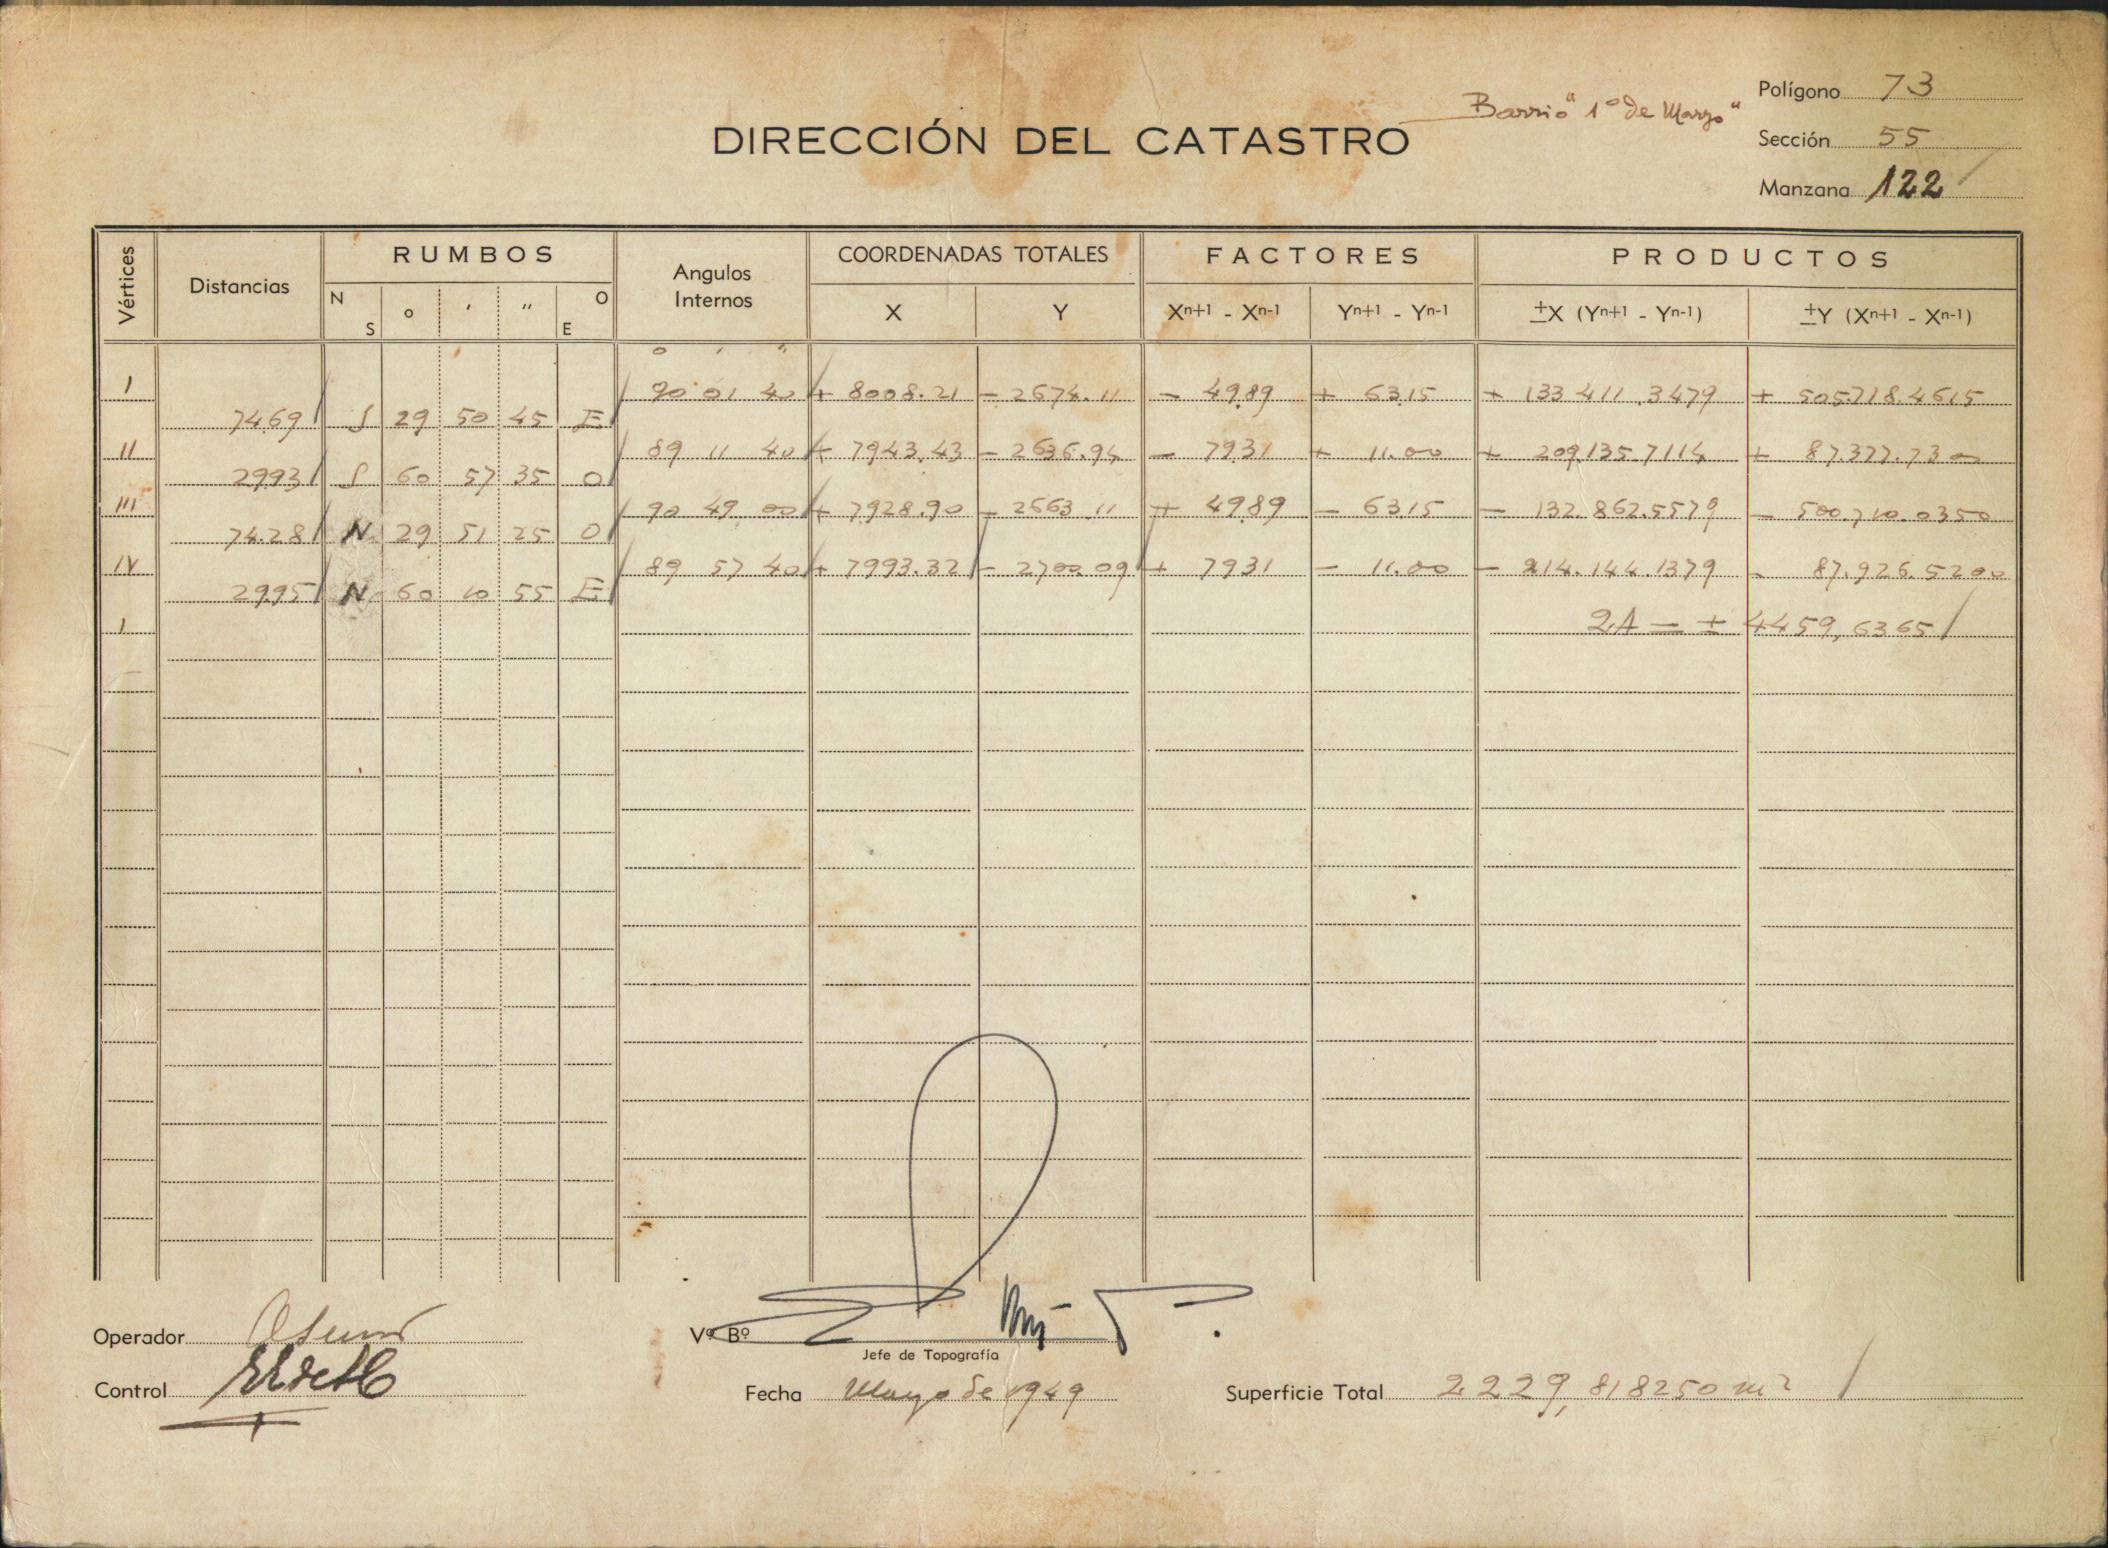 Barrio "1º de Marzo"
Polígono 73
DIRECCIÓN DEL CATASTRO
Sección 55
Manzana 122
Vértices Distancias RUMBOS N S o ' " O E Angulos Internos COORDENADAS TOTALES X Y FACTORES Xn+1 - Xn-1 Yn+1 - Yn-1 PRODUCTOS ±X (Yn+1 - Yn-1) ±Y (Xn+1 - Xn-1)
o ' "
I 90 01 40 + 8008.21 - 2674.11 - 49.89 + 63.15 + 133.411.3479 + 505.718.4615
74.69 S 29 50 45 E
II 89 11 40 + 7943.43 - 2636.94 - 79.31 + 11.00 + 209.135.7114 + 87.377.7300
29.93 S 60 57 35 O
III 90 49 00 + 7928.90 - 2663.11 + 49.89 - 63.15 - 132.862.5579 - 500.710.0350
74.28 N 29 51 25 O
IV 89 57 40 + 7993.32 - 2700.09 + 79.31 - 11.00 - 214.144.1379 - 87.926.5200
29.95 N 60 10 55 E
I 2A = ± 4459,6365
Operador
Vº Bº
Jefe de Topografía
Control
Fecha Mayo de 1949
Superficie Total 2229,818250 m2